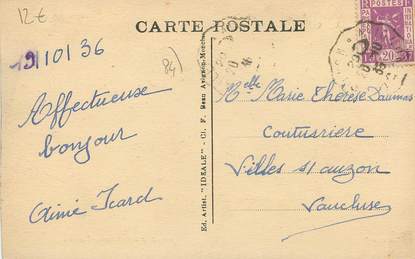 12€
CARTE POSTALE
19/10/36
84
Affectueuse
bonjour
Aimé Icard
Ed. Artist. "IDEALE" - Cl. F. Beau Avignon-Monclar
POSTES
1F20
Melle Marie Thérèse Daumas
Couturière
Villes s/ auzon
Vaucluse